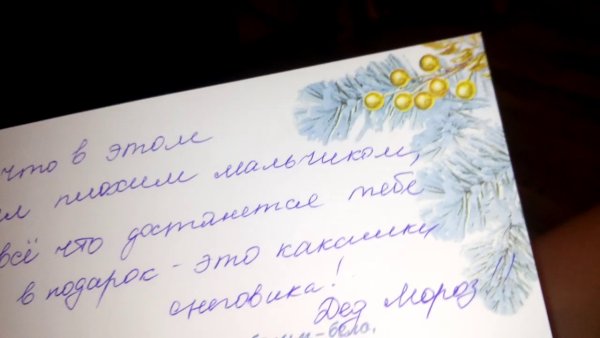 что в этом
л плохим мальчиком,
всё что достанется тебе
в подарок - это какашки
снеговика!
Дед Мороз!!
-бело,